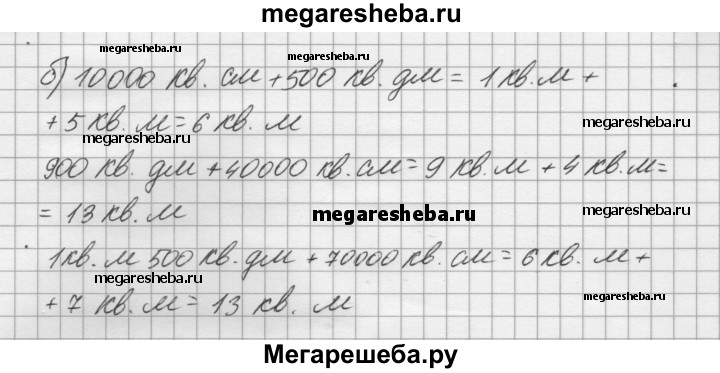 megaresheba.ru
megaresheba.ru
megaresheba.ru
б) 10000 кв. см + 500 кв. дм = 1 кв. м +
+ 5 кв. м = 6 кв. м
megaresheba.ru
megaresheba.ru
900 кв. дм + 40000 кв. см = 9 кв. м + 4 кв. м =
= 13 кв. м
megaresheba.ru
megaresheba.ru
1 кв. м 500 кв. дм + 70000 кв. см = 6 кв. м +
megaresheba.ru
+ 7 кв. м = 13 кв. м
megaresheba.ru
megaresheba.ru
Мегарешеба.ру